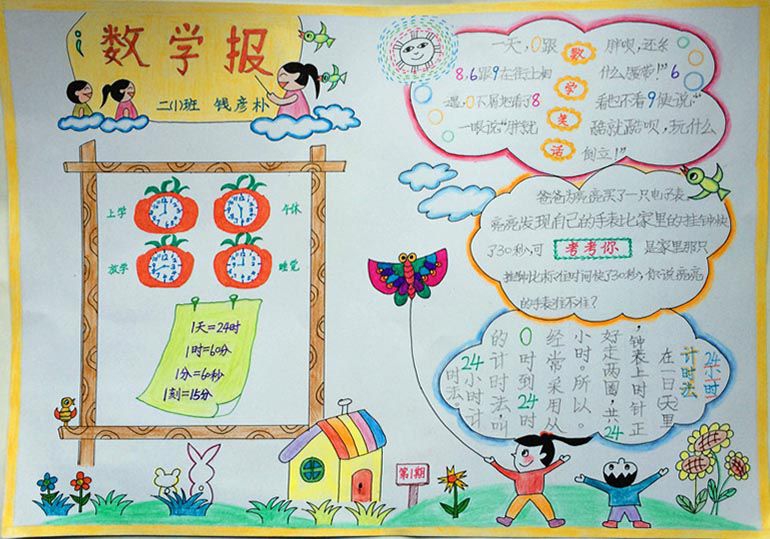 数学报
二(1)班 钱彦朴
上学
午休
放学
睡觉
1天=24时
1时=60分
1分=60秒
1刻=15分
数学笑话
一天,0跟
8,6跟9在街上相
遇,0不屑地看了8
一眼说"胖就
胖呗,还系
什么腰带!"6
看也不看9便说:"
酷就酷呗,玩什么
倒立!"
爸爸为亮亮买了一只电子表,
亮亮发现自己的手表比家里的挂钟快
了30秒,可 考考你 是家里那只
挂钟比标准时间快了30秒,你说亮亮
的手表准不准?
24小时
计时法
在一日(天)里
,钟表上时针正
好走两圈,共24
小时。所以。
经常采用从
0时到24时
的计时法,叫
24小时计
时法。
第1期